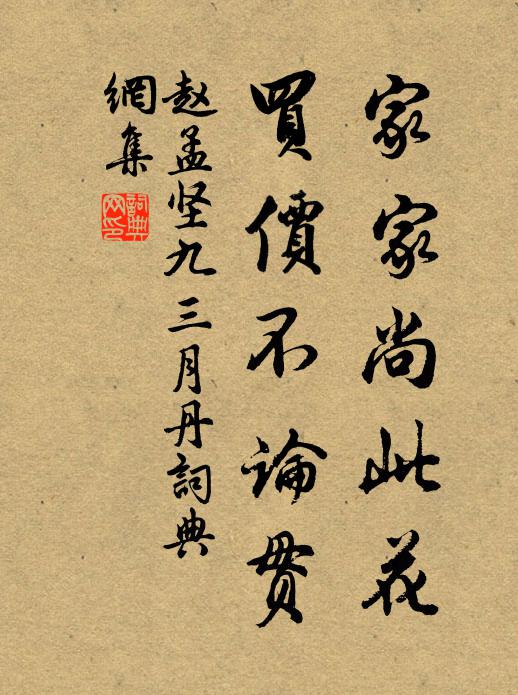 家家尚此花
買價不論貫
赵孟坚九三月丹詞典
網集
詞典
网印